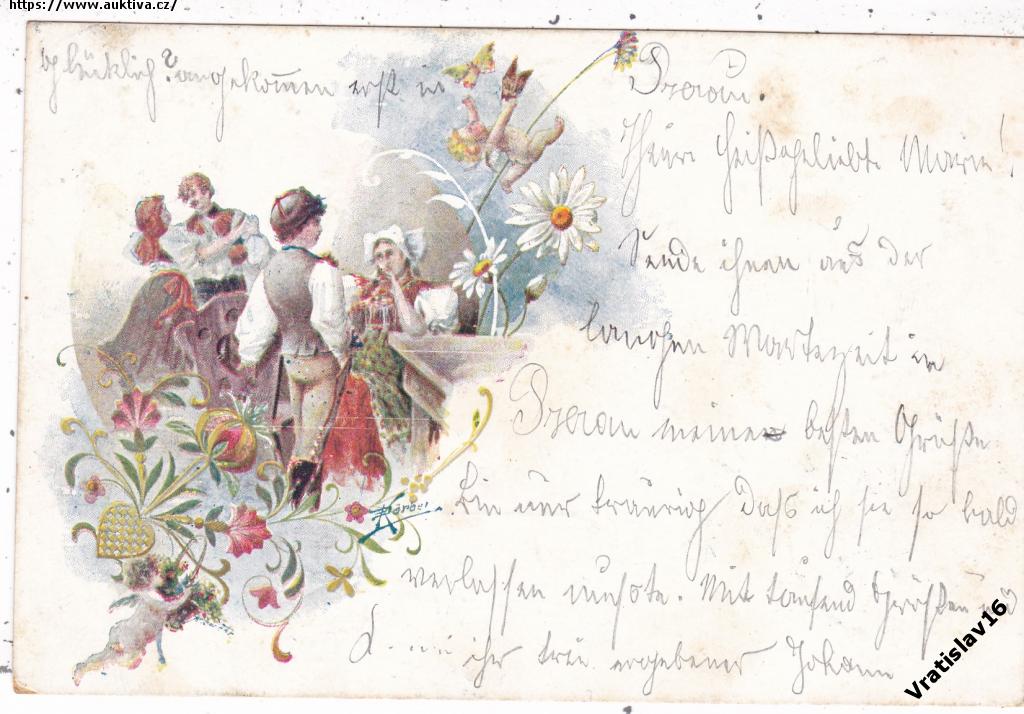 https://www.auktiva.cz/
glücklich? angekommen erst in
Prerau.
Theure heißgeliebte Marie!
Sende ihnen aus der
langen Wartezeit in
Prerau meine besten Grüße
Bin nur traurig Daß ich sie so bald
verlassen mußte. Mit tausend Grüßen
ihr treu ergebener Johann
Körbel
Vratislav16